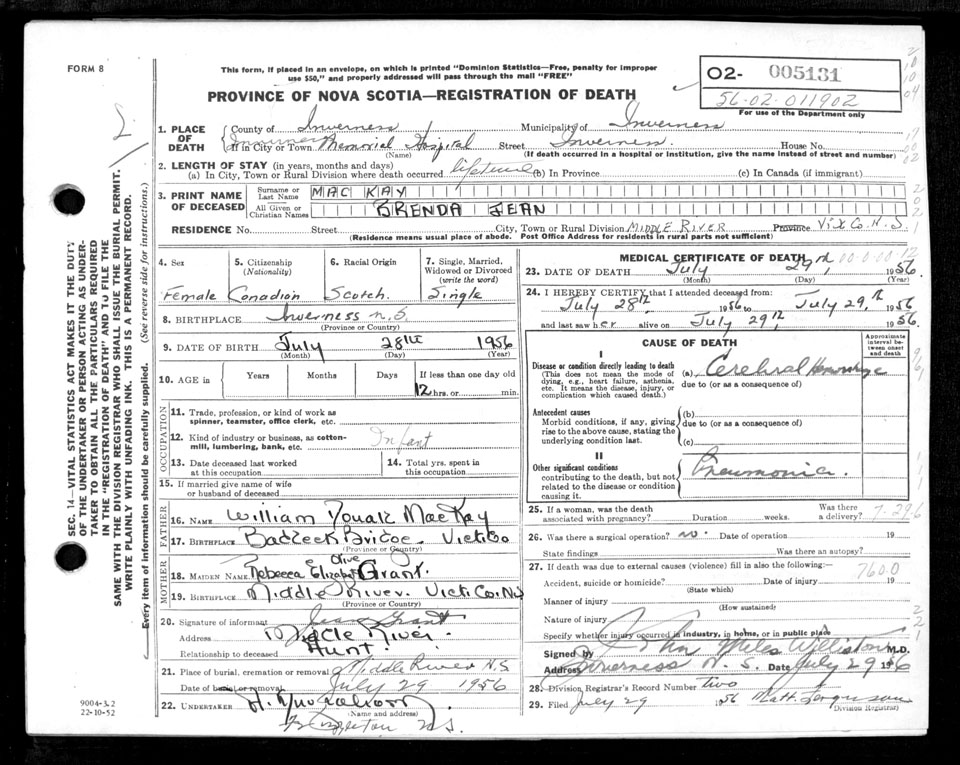 FORM 8
This form, if placed in an envelope, on which is printed "Dominion Statistics—Free, penalty for improper
use $50," and properly addressed will pass through the mail "FREE"
PROVINCE OF NOVA SCOTIA—REGISTRATION OF DEATH
O2- 005131
56-02-011902
For use of the Department only
SEC. 14—VITAL STATISTICS ACT MAKES IT THE DUTY
OF THE UNDERTAKER OR PERSON ACTING AS UNDER-
TAKER TO OBTAIN ALL THE PARTICULARS REQUIRED
IN THE "REGISTRATION OF DEATH" AND TO FILE THE
SAME WITH THE DIVISION REGISTRAR WHO SHALL ISSUE THE BURIAL PERMIT.
WRITE PLAINLY WITH UNFADING INK. THIS IS A PERMANENT RECORD.
Every item of information should be carefully supplied. (See reverse side for instructions.)
1. PLACE OF DEATH County of Inverness Municipality of Inverness
If in City or Town Memorial Hospital Street Inverness House No.
(Name) (If death occurred in a hospital or institution, give the name instead of street and number)
2. LENGTH OF STAY (in years, months and days)
(a) In City, Town or Rural Division where death occurred lifetime (b) In Province (c) In Canada (if immigrant)
3. PRINT NAME OF DECEASED Surname or Last Name MAC KAY
All Given or Christian Names BRENDA JEAN
RESIDENCE No. Street City, Town or Rural Division MIDDLE RIVER Province Vix Co. N.S.
(Residence means usual place of abode. Post Office Address for residents in rural parts not sufficient)
4. Sex Female
5. Citizenship (Nationality) Canadian
6. Racial Origin Scotch.
7. Single, Married, Widowed or Divorced (write the word) Single
8. BIRTHPLACE Inverness N.S.
(Province or Country)
9. DATE OF BIRTH July 28th 1956
(Month) (Day) (Year)
10. AGE in Years Months Days If less than one day old
12 hrs. or min.
OCCUPATION
11. Trade, profession, or kind of work as
spinner, teamster, office clerk, etc.
12. Kind of industry or business, as cotton-
mill, lumbering, bank, etc. Infant
13. Date deceased last worked
at this occupation
14. Total yrs. spent in
this occupation
15. If married give name of wife
or husband of deceased
FATHER
16. NAME William MacKay
17. BIRTHPLACE Baddeck Vict Co
(Province or Country)
MOTHER
18. MAIDEN NAME Rebecca Olive Grant.
19. BIRTHPLACE Middle River. Vict. Co. NS
(Province or Country)
20. Signature of informant Jean Grant
Address Middle River.
Relationship to deceased Aunt.
21. Place of burial, cremation or removal Middle River N.S.
Date of burial or removal July 29 1956
22. UNDERTAKER
(Name and address)
N.S.
9004-3.2
22-10-52
MEDICAL CERTIFICATE OF DEATH
23. DATE OF DEATH July 29th 1956.
(Month) (Day)
24. I HEREBY CERTIFY that I attended deceased from:
July 28th 1956 to July 29,th 1956
and last saw her alive on July 29th 1956.
CAUSE OF DEATH
Approximate interval between onset and death
I
Disease or condition directly leading to death
(This does not mean the mode of
dying, e.g., heart failure, asthenia,
etc. It means the disease, injury, or
complication which caused death.)
(a) Cerebral Hemorrhage
due to (or as a consequence of)
Antecedent causes
Morbid conditions, if any, giving
rise to the above cause, stating the
underlying condition last.
(b)
due to (or as a consequence of)
(c)
II
Other significant conditions
contributing to the death, but not
related to the disease or condition
causing it.
Pneumonia.
25. If a woman, was the death
associated with pregnancy? Duration weeks. Was there
a delivery?
26. Was there a surgical operation? no. Date of operation 19
State findings Was there an autopsy?
27. If death was due to external causes (violence) fill in also the following:— 760.0
Accident, suicide or homicide? Date of injury 19
(State which)
Manner of injury
(How sustained)
Nature of injury
Specify whether injury occurred in industry, in home, or in public place
Signed by John Miles Williston M.D.
Address Inverness N. S. Date July 29 1956
28. Division Registrar's Record Number two
29. Filed July 29 1956 Matt. Ferguson
Division Registrar